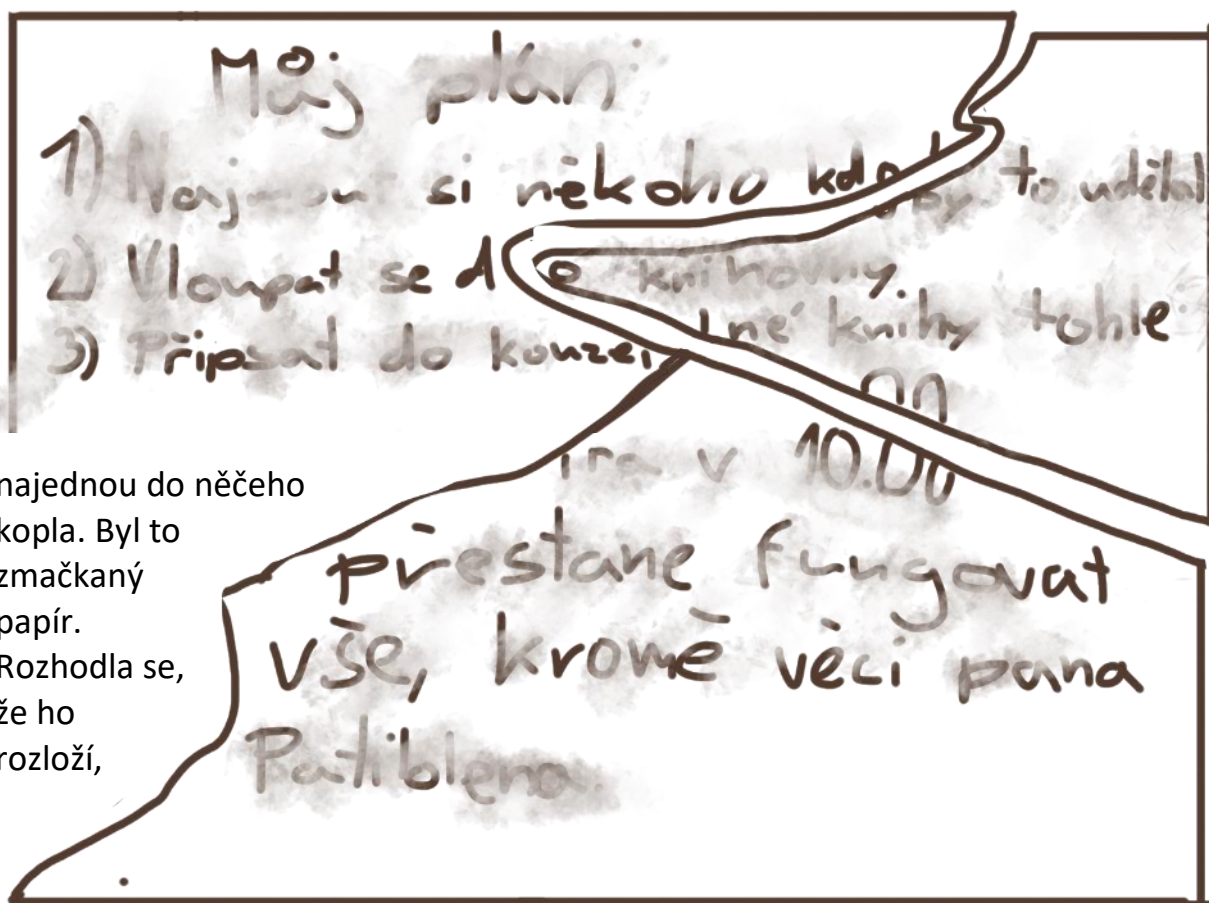 Můj plán:
1) Najmout si někoho kdo by to udělal
2) Vloupat se do knihovny.
3) Připsat do kouzelné knihy tohle:
v 10.00
přestane fungovat
vše, kromě věci pana
Patiblena.
najednou do něčeho
kopla. Byl to
zmačkaný
papír.
Rozhodla se,
že ho
rozloží,